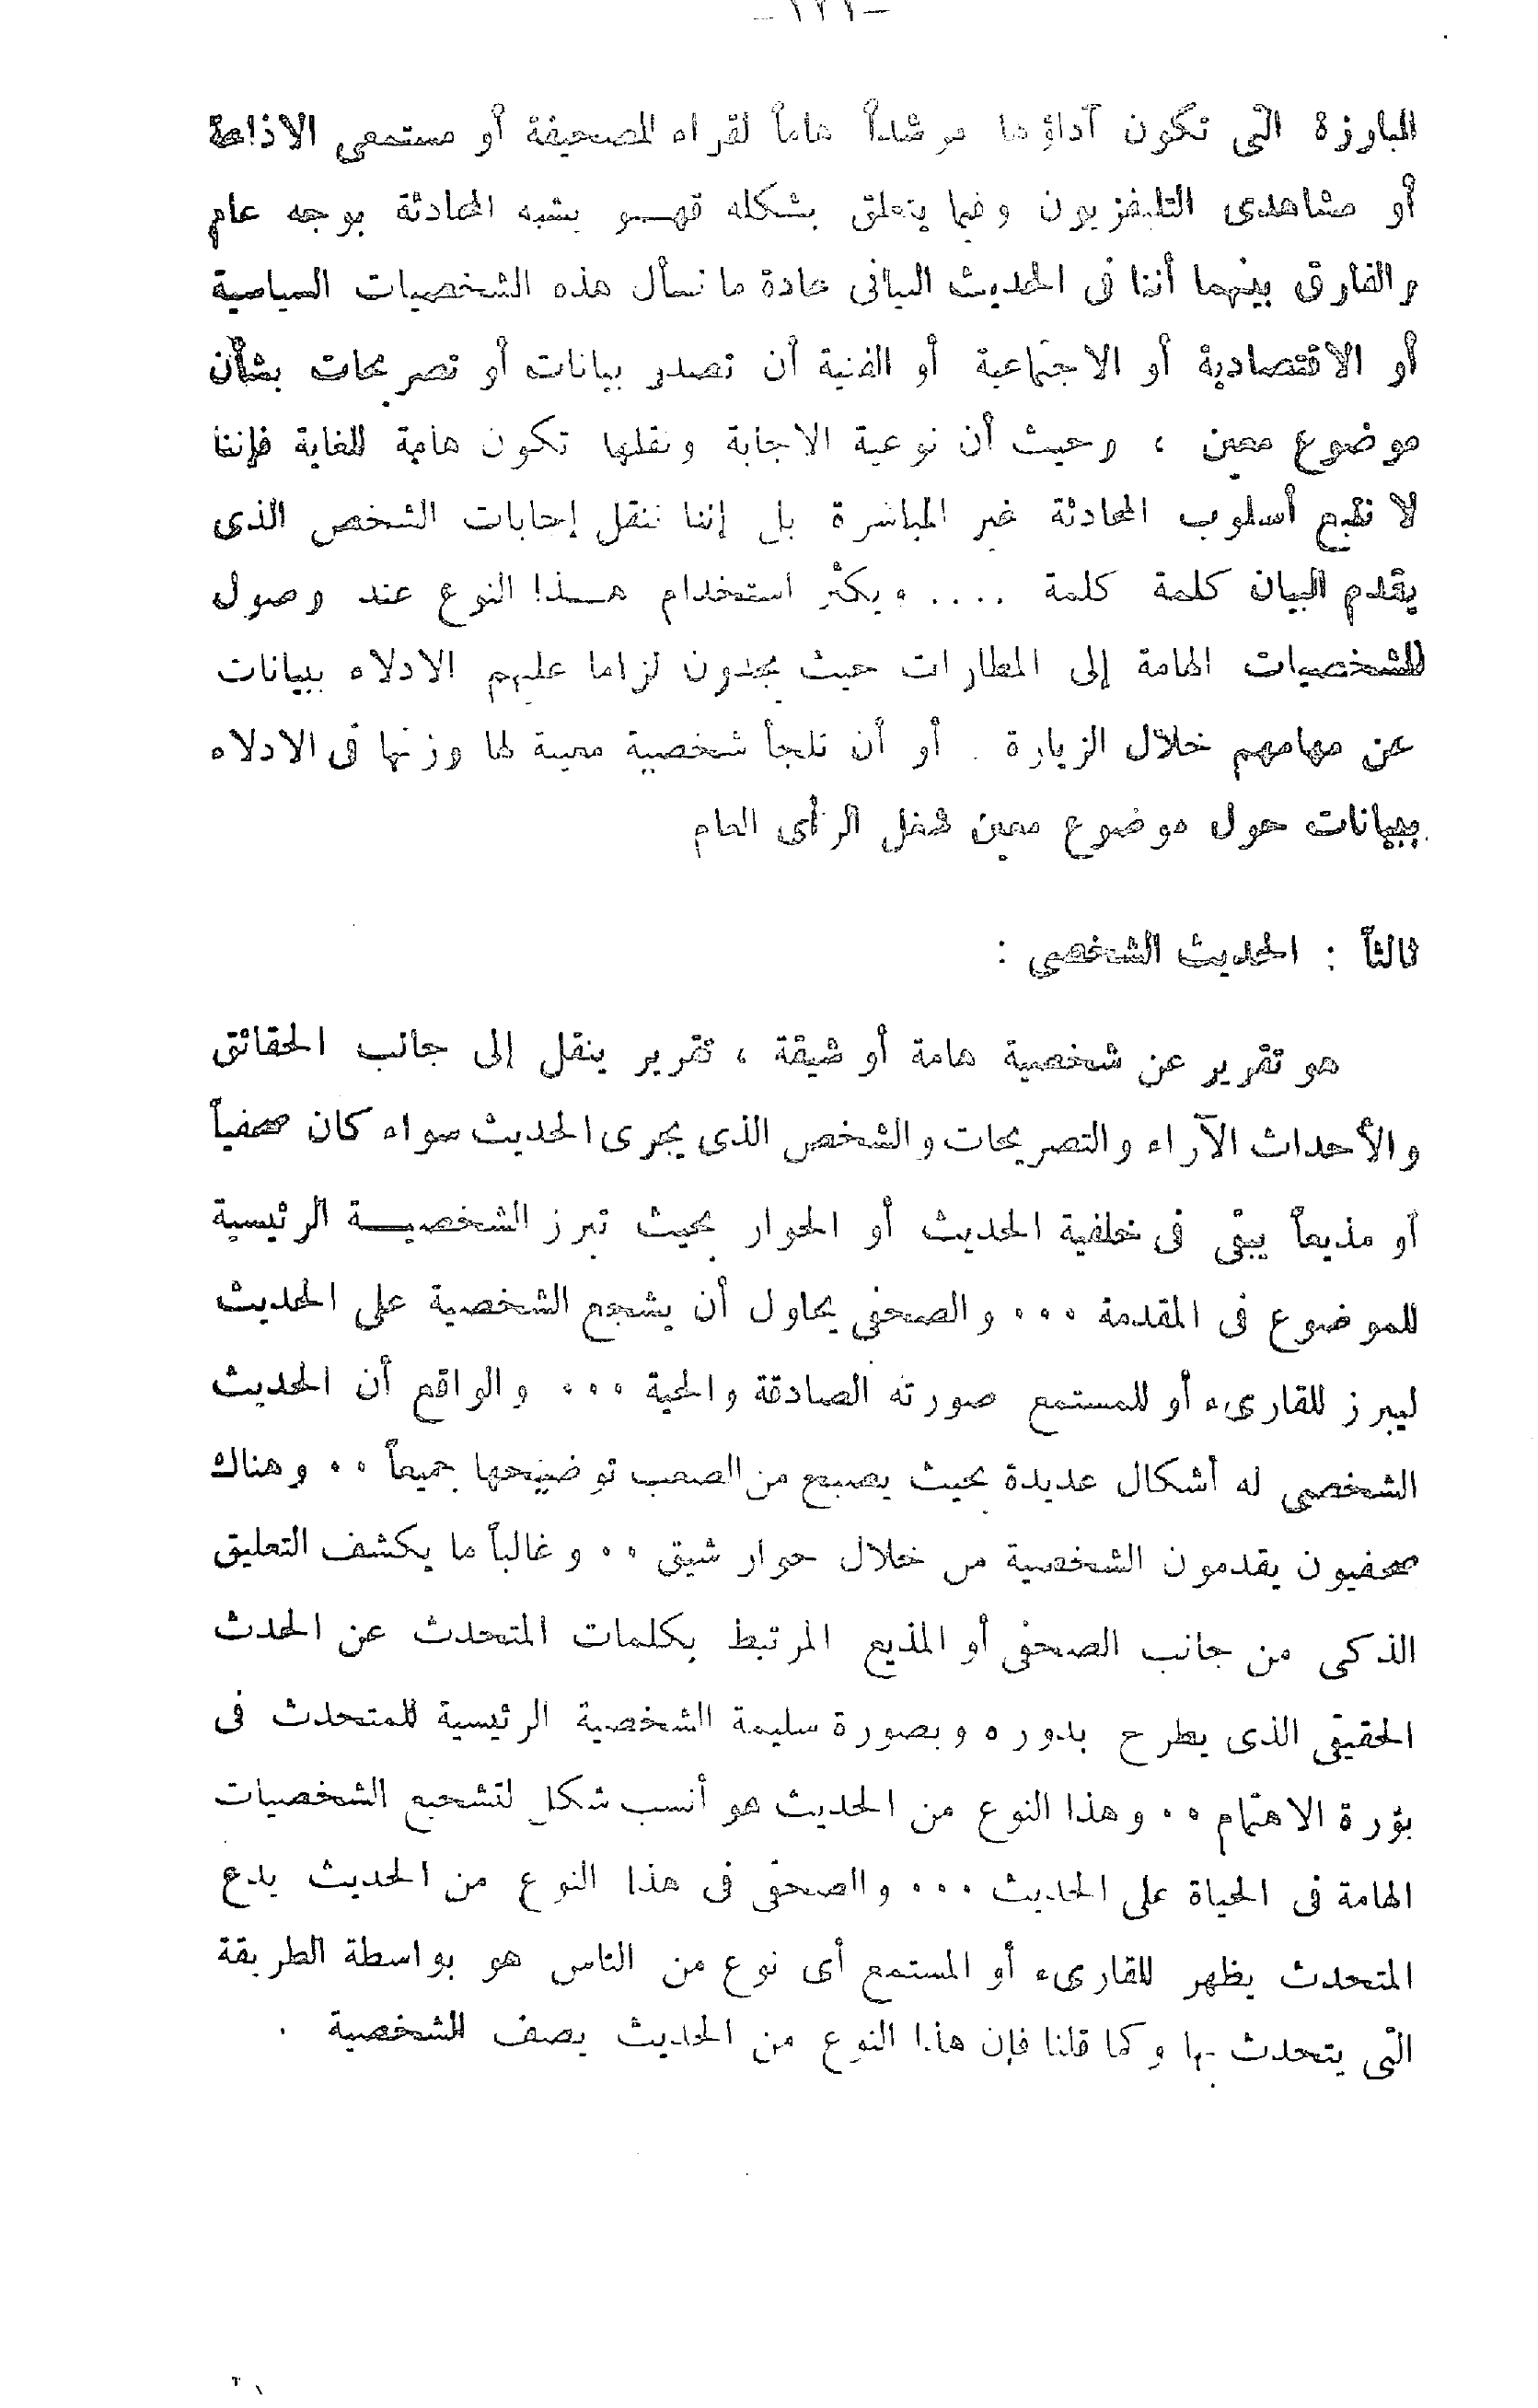 البارزة التى تكون آداؤها مرشداً هاماً لقراء الصحيفة أو مستمعى الاذاعة
أو مشاهدى التليفزيون وفيما يتعلق بشكله فهو يشبه المحادثة بوجه عام
والفارق بينهما أننا فى الحديث البيانى عادة ما نسأل هذه الشخصيات السياسية
أو الاقتصادية أو الاجتماعية أو الفنية أن تصدر بيانات أو تصريحات بشأن
موضوع معين ، وحيث أن نوعية الاجابة ونقلها تكون هامة للغاية فإننا
لا نتبع أسلوب المحادثة غير المباشرة بل إننا ننقل إجابات الشخص الذى
يقدم البيان كلمة كلمة .... ويكثر استخدام هـذا النوع عند وصول
الشخصيات الهامة إلى المطارات حيث يجدون لزاما عليهم الادلاء ببيانات
عن مهامهم خلال الزيارة . أو أن تلجأ شخصية معينة لها وزنها فى الادلاء
ببيانات حول موضوع معين شغل الرأى العام
ثالثاً : الحديث الشخصى :
هو تقرير عن شخصية هامة أو شيقة ، تقرير ينقل إلى جانب الحقائق
والأحداث الآراء والتصريحات والشخص الذى يجرى الحديث سواء كان صحفياً
أو مذيعاً يبقى فى خلفية الحديث أو الحوار بحيث تبرز الشخصيـة الرئيسية
للموضوع فى المقدمة ... والصحفى يحاول أن يشجع الشخصية على الحديث
ليبرز للقارىء أو للمستمع صورته الصادقة والحية ... والواقع أن الحديث
الشخصى له أشكال عديدة بحيث يصبح من الصعب توضيحها جميعاً .. وهناك
صحفيون يقدمون الشخصية من خلال حوار شيق .. وغالباً ما يكشف التعليق
الذكى من جانب الصحفى أو المذيع المرتبط بكلمات المتحدث عن الحدث
الحقيقى الذى يطرح بدوره وبصورة سليمة الشخصية الرئيسية للمتحدث فى
بؤرة الاهتمام .. وهذا النوع من الحديث هو أنسب شكل لتشجيع الشخصيات
الهامة فى الحياة على الحديث ... والصحفى فى هذا النوع من الحديث يدع
المتحدث يظهر للقارىء أو المستمع أى نوع من الناس هو بواسطة الطريقة
التى يتحدث بها وكما قلنا فإن هذا النوع من الحديث يصف الشخصية .